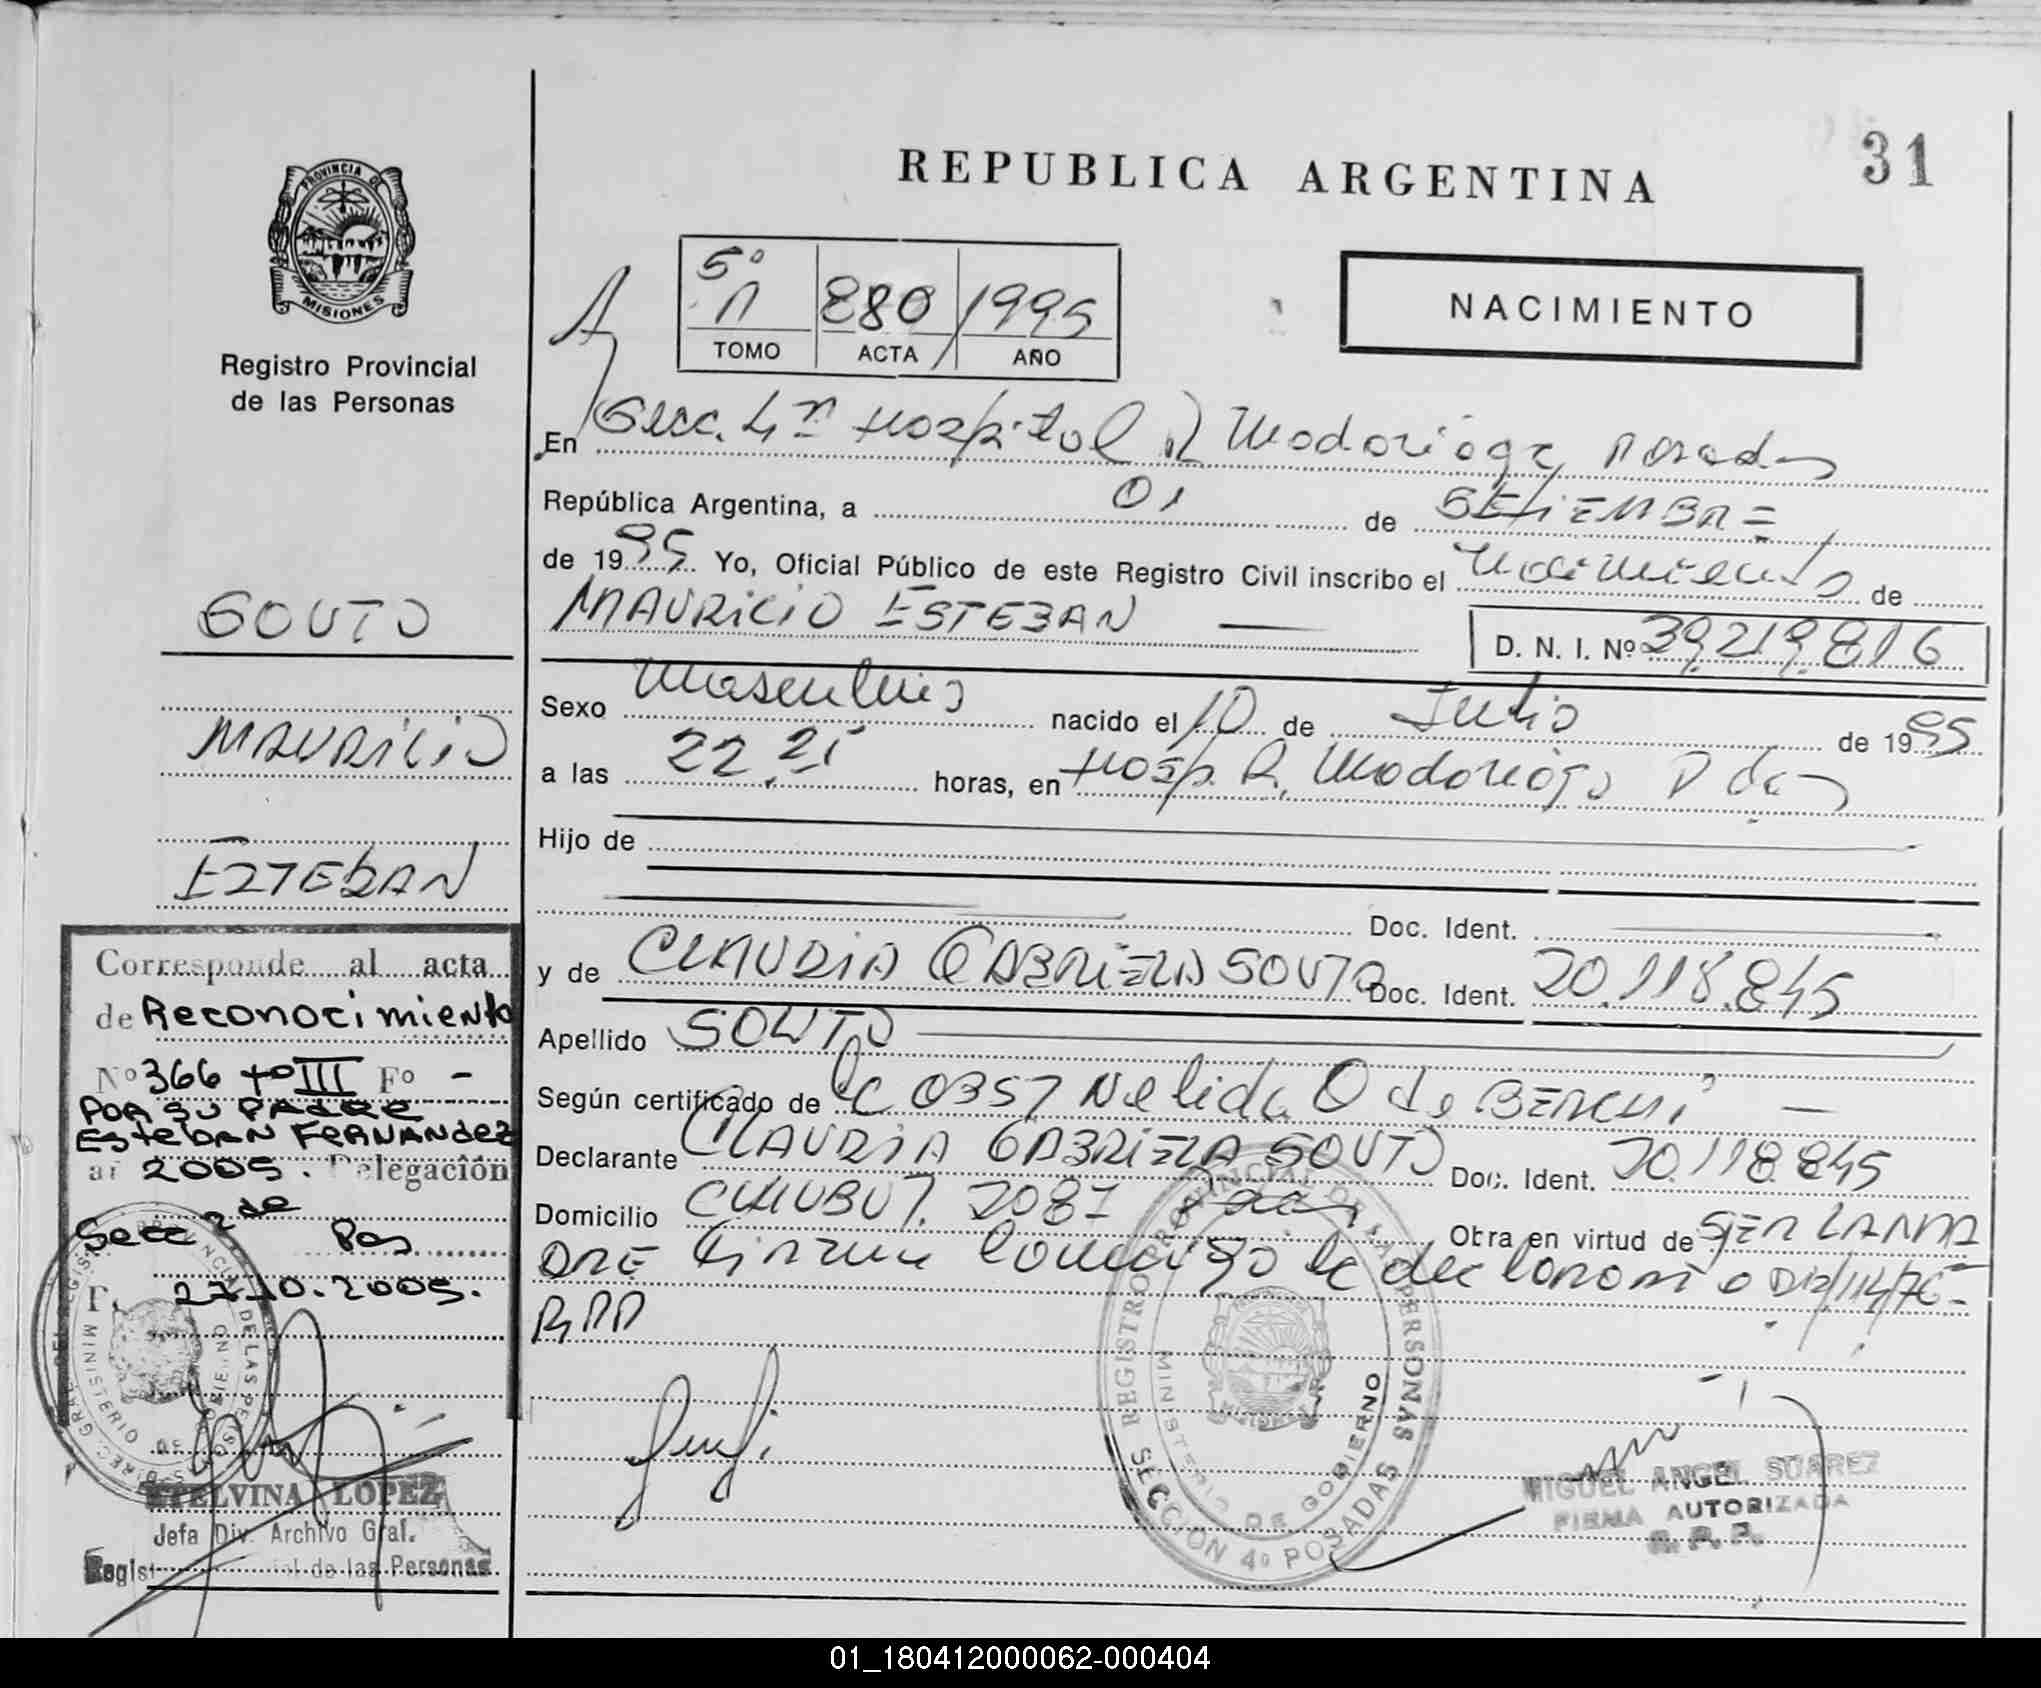 31
REPUBLICA ARGENTINA
PROVINCIA DE
MISIONES
Registro Provincial
de las Personas
5º
880 1995
TOMO ACTA AÑO
NACIMIENTO
En Secc. 4ª Hospital R Madariaga Posadas
República Argentina, a 01 de SETIEMBRE
de 1995 Yo, Oficial Público de este Registro Civil inscribo el Nacimiento de
MAURICIO ESTEBAN
D. N. I. Nº 39.219.816
Sexo Masculino nacido el 10 de Julio de 1995
a las 22.25 horas, en Hosp. R. Madariaga Pdas
Hijo de
Doc. Ident.
y de CLAUDIA GABRIELA SOUTO Doc. Ident. 20.118.845
Apellido SOUTO
Según certificado de 0357 Nelida O de
Declarante CLAUDIA GABRIELA SOUTO Doc. Ident. 20.118.845
Domicilio CHUBUT. 2087 Pdas Obra en virtud de SER LA MA
DRE Firma conmigo la declarante
SOUTO
MAURICIO
ESTEBAN
Corresponde al acta
de Reconocimiento
Nº 366 tº III Fº -
POR SU PADRE
Esteban FERNANdez
añ 2005. Delegación
Secc 2da Pos
F. 27.10.2005.
ETELVINA LOPEZ
Jefa Div. Archivo Gral.
Regist ial de las Personas
REGISTRO PROVINCIAL DE LAS PERSONAS
MINISTERIO DE GOBIERNO
SECCION 4º POSADAS
MIGUEL ANGEL SUAREZ
FIRMA AUTORIZADA
R. P. P.
01_180412000062-000404